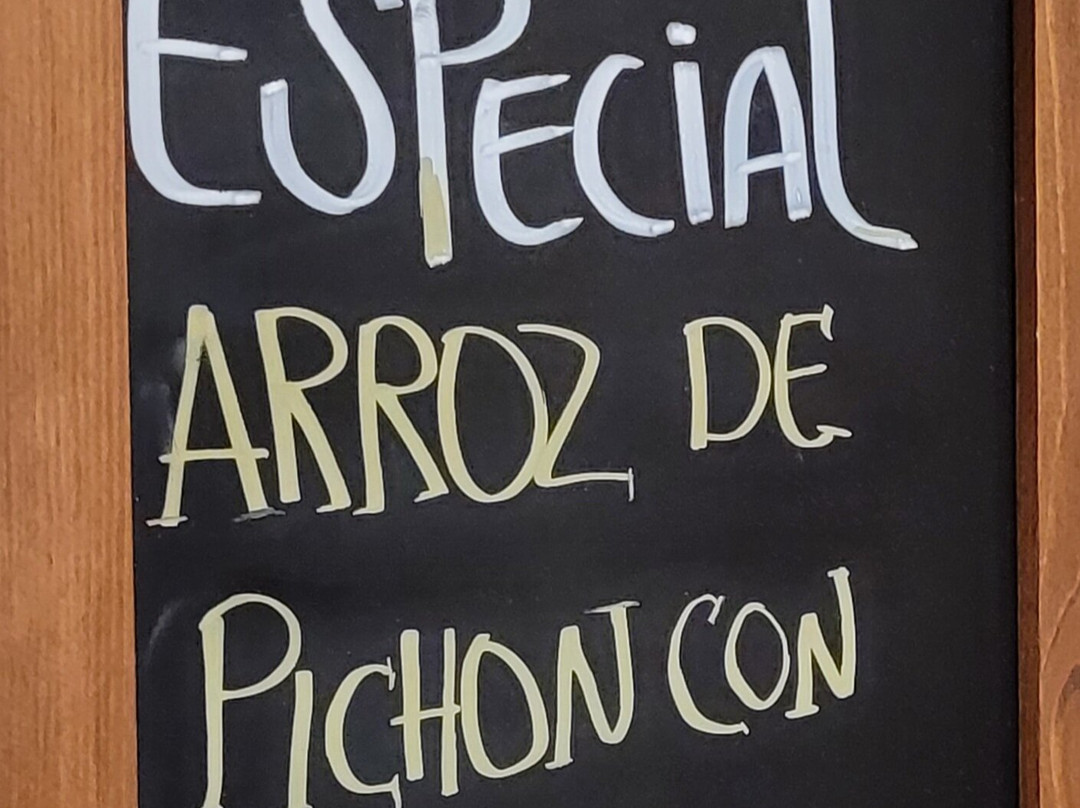 ESPECiAL
ARROZ DE
PICHON CON